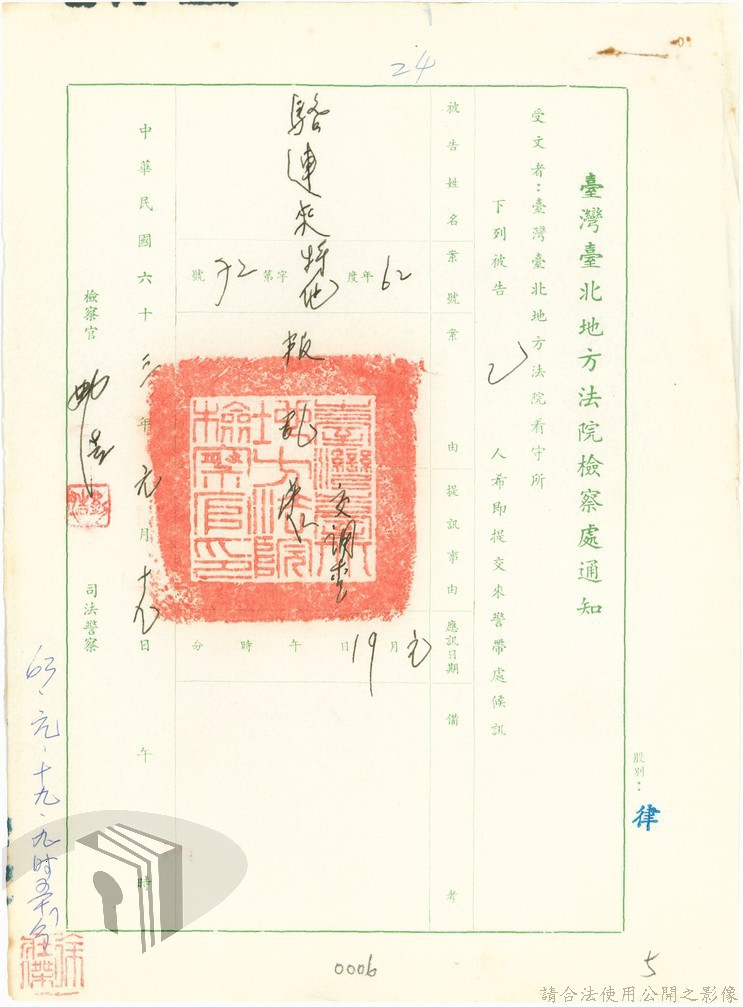 24
臺灣臺北地方法院檢察處通知
股別：律
受文者：臺灣臺北地方法院看守所
下列被告 乙 人希即提交來警帶處候訊
被告姓名
案號
案由
提訊事由
應訊日期
備考
62年度 字第 72 號
叛亂
交調查
元月19日 午 時 分
中華民國六十三年元月十九日 午 時
檢察官
司法警察
臺灣臺北地方法院檢察官印
63、元、十九、九时
0006
5
請合法使用公開之影像